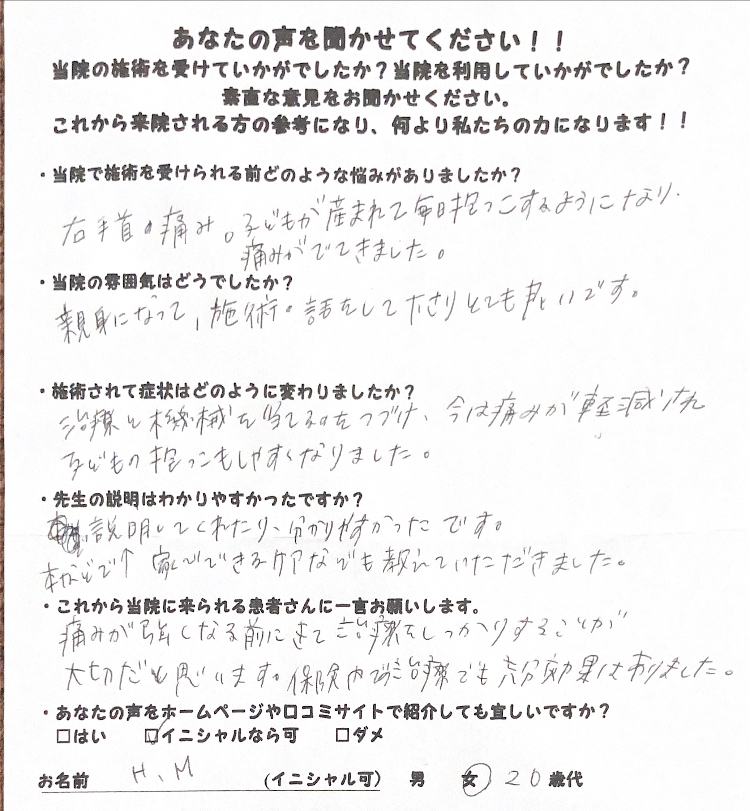 あなたの声を聞かせてください！！
当院の施術を受けていかがでしたか？当院を利用していかがでしたか？
素直な意見をお聞かせください。
これから来院される方の参考になり、何より私たちの力になります！！
・当院で施術を受けられる前どのような悩みがありましたか？
右手首の痛み。子どもが産まれて毎日抱っこするようになり、
痛みがでてきました。
・当院の雰囲気はどうでしたか？
親身になって、施術・話をして下さりとても良いです。
・施術されて症状はどのように変わりましたか？
治療と機械を当てるのをつづけ、今は痛みが軽減され
子どもの抱っこもしやすくなりました。
・先生の説明はわかりやすかったですか？
説明してくれたり、分かりやすかったです。
本などで↑ 家でできるケアなども教えていただきました。
・これから当院に来られる患者さんに一言お願いします。
痛みが強くなる前にきて治療をしっかりすることが
大切だと思います。保険内で治療でも充分効果はありました。
・あなたの声をホームページや口コミサイトで紹介しても宜しいですか？
□はい ☑イニシャルなら可 □ダメ
お名前 H.M (イニシャル可) 男 女 20歳代